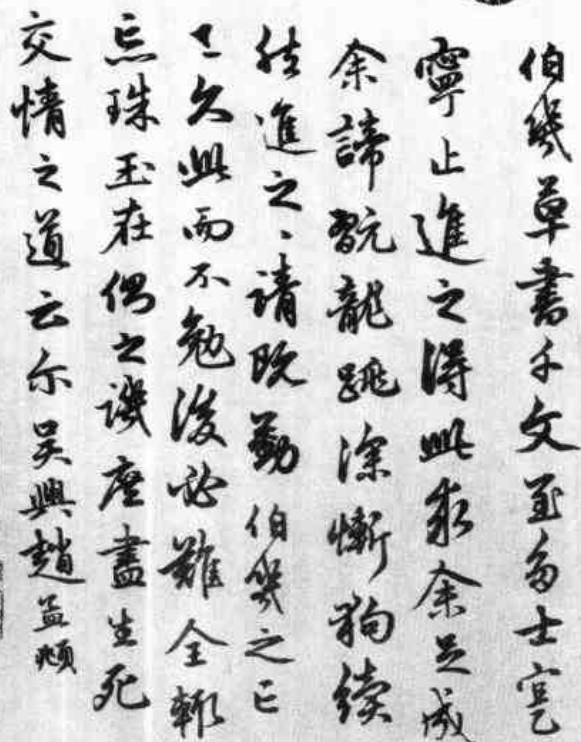 伯幾草書千文至多士寔
寧止進之得此求余足成
余諦翫龍跳深慚狗續
然進之〻請既勤伯幾之亡
已久此而不勉後必難全輒
忘珠玉在側之譏庶盡生死
交情之道云尒吳興趙孟頫